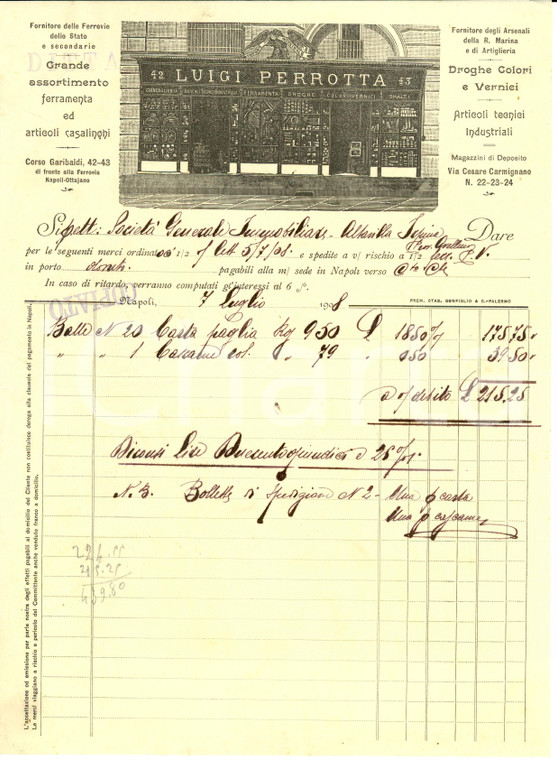 Fornitore delle Ferrovie
dello Stato
e secondarie
Grande
assortimento
ferramenta
ed
articoli casalinghi
Corso Garibaldi, 42-43
di fronte alla Ferrovia
Napoli-Ottajano
42 LUIGI PERROTTA 43
FERRAMENTA DROGHE COLORI VERNICI SMALTI
Fornitore degli Arsenali
della R. Marina
e di Artiglieria
Droghe Colori
e Vernici
Articoli tecnici
Industriali
Magazzini di Deposito
Via Cesare Carmignano
N. 22-23-24
Spett: Società Generale Immobiliare Altavilla Irpina Dare
per le seguenti merci ordinate 1/2 lett 5/7/08 e spedite a v/ rischio a 1/2 ferr. P. V.
in porto pagabili alla m/ sede in Napoli verso
In caso di ritardo, verranno computati gl'interessi al 6 %
COPIATO
Napoli, 7 Luglio 1908
PREM. STAB. SERPIGLIO & C.-PALERMO
Balle N 20 Carta paglia Kg 950 £ 1850% 175,75
„ „ 1 Cascame col. „ 79 „ 050 39,50
a v/ debito £ 215.25
Diconsi Lire Duecentoquindici e 25 %
N.B. Bollette di Spedizione N 2 - Una p carta
Una p cascame
224.55
215.25
439.80
L'accettazione od emissione per parte nostra degli effetti pagabili al domicilio del Cliente non costituisce deroga alla clausola del pagamento in Napoli.
Le merci viaggiano a rischio e pericolo del Committente anche vendute franco a domicilio.